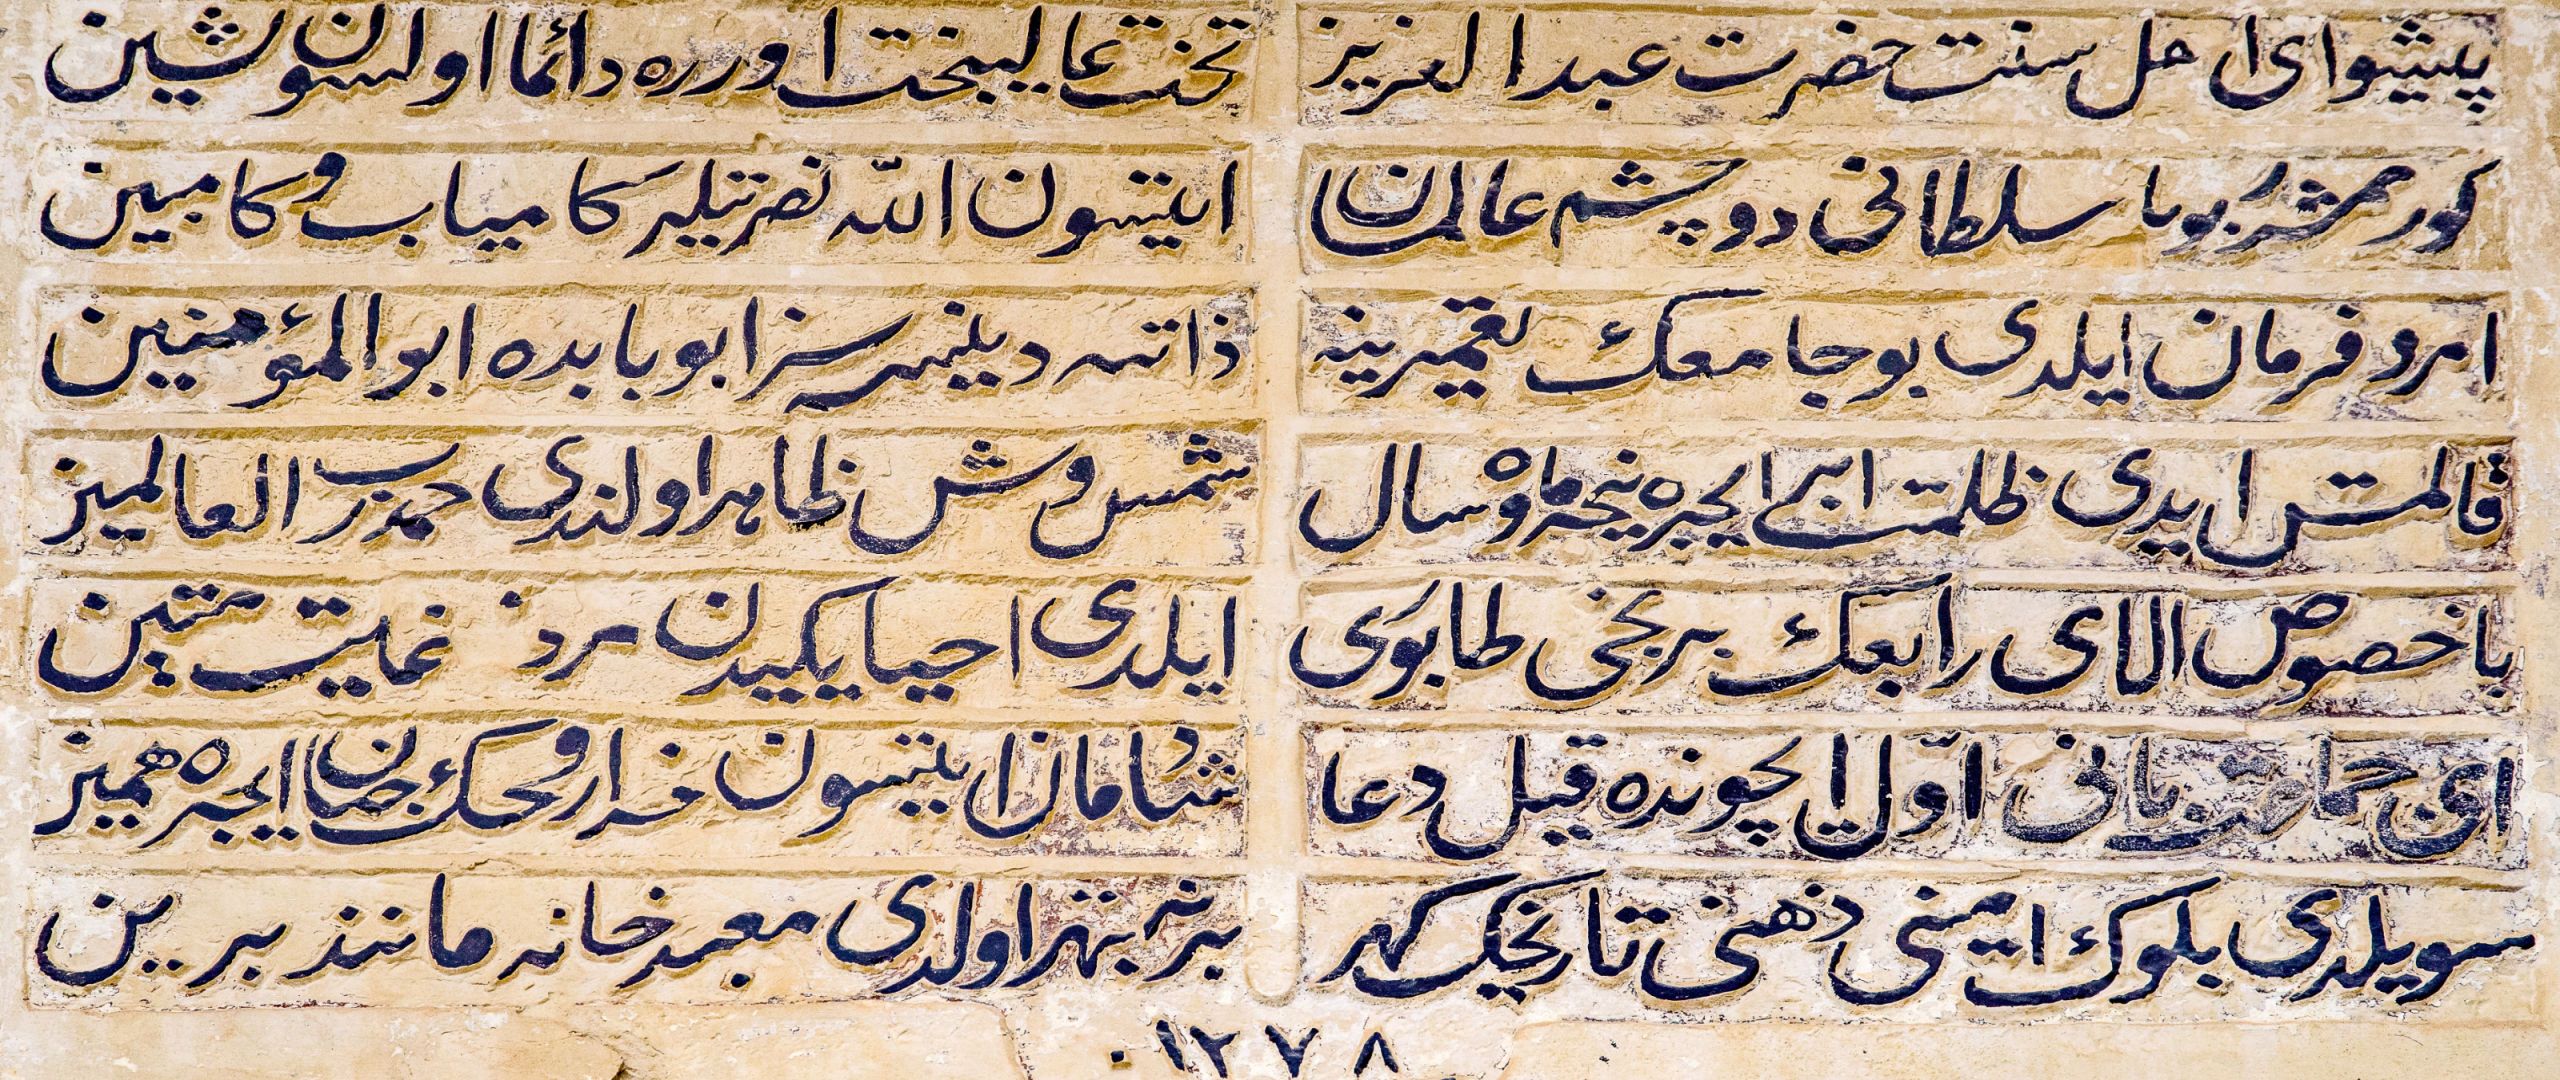 پیشوای اهل سنت حضرت عبدالعزیز
تخت عالیبخت اوره دائما اولسون نشین
کورممشدر بویله سلطانی دو چشم عالمان
ایتسون الله نصرتیله کامیاب و کامبین
امر و فرمان ایلدی بو جامعک تعمیرینه
ذاتنه دینسه سزا بو بابده ابو المؤمنین
قالمش ایدی ظلمت ابر ایچره نیجه ماه و سال
شمس وش ظاهر اولندی حمد رب العالمین
باخصوص الای رابعک بر بخی طابوری
ایلدی احیا یکیدن متین
ای جماعت بانی اول ایچونده قیل دعا
شادمان ایتسون خدا روحک جنان ایچره همین
سویلدی بلوک امینی ذهنی تاریخک کهر
بربر بهتر اولدی معبد خانه مانند برین
١٢٧٨